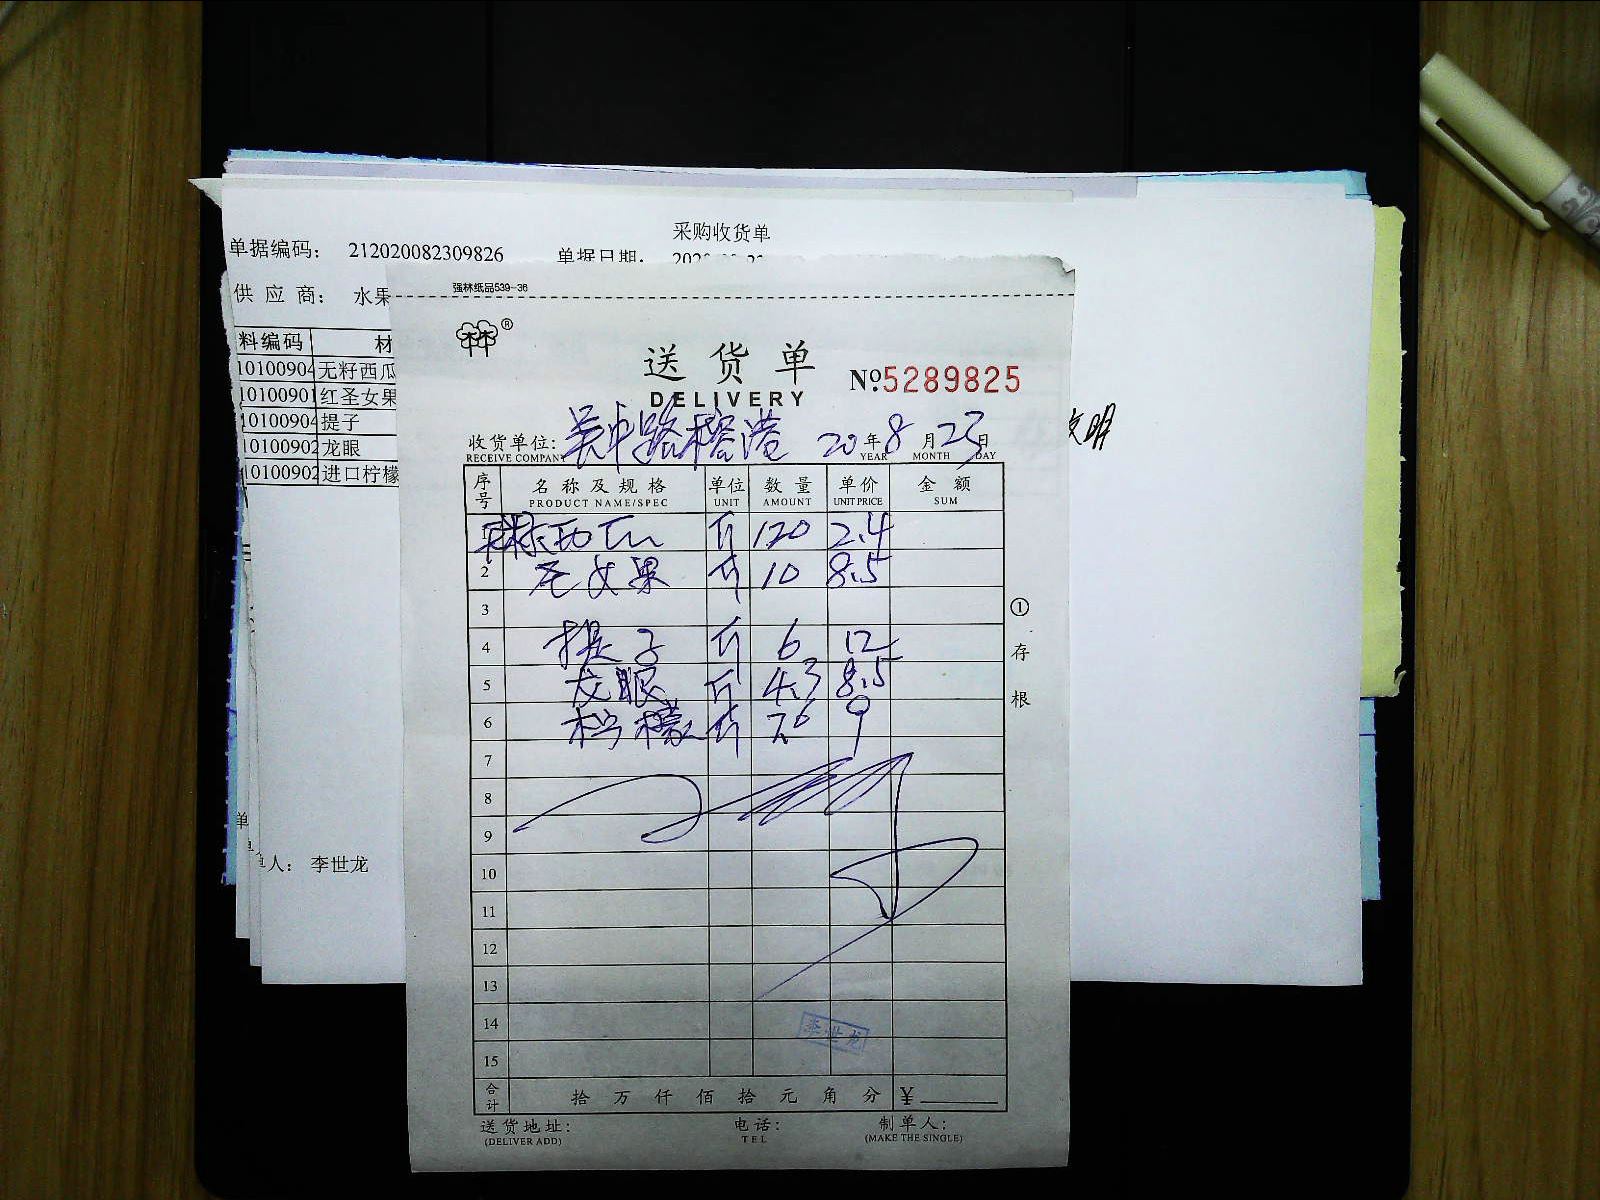 采购收货单
单据编码： 212020082309826 单据日期：
供 应 商： 水果
料编码 材
10100904 无籽西瓜
10100901 红圣女果
10100904 提子
10100902 龙眼
10100902 进口柠檬
单
人： 李世龙
文明
强林纸品539-36
林林 ®
送货单
DELIVERY
№5289825
收货单位： 吴中路榕港 20 年 8 月 23 日
RECEIVE COMPANY YEAR MONTH DAY
序号 名称及规格 单位 数量 单价 金额
PRODUCT NAME/SPEC UNIT AMOUNT UNIT PRICE SUM
1 西瓜 斤 120 2.4
2 圣女果 斤 10 8.5
3
4 提子 斤 6 12
5 龙眼 斤 4.3 8.5
6 柠檬 斤 7.6 9
7
8
9
10
11
12
13
14
15
李世龙
合计 拾 万 仟 佰 拾 元 角 分 ¥
送货地址： 电话： 制单人：
(DELIVER ADD) TEL (MAKE THE SINGLE)
① 存根